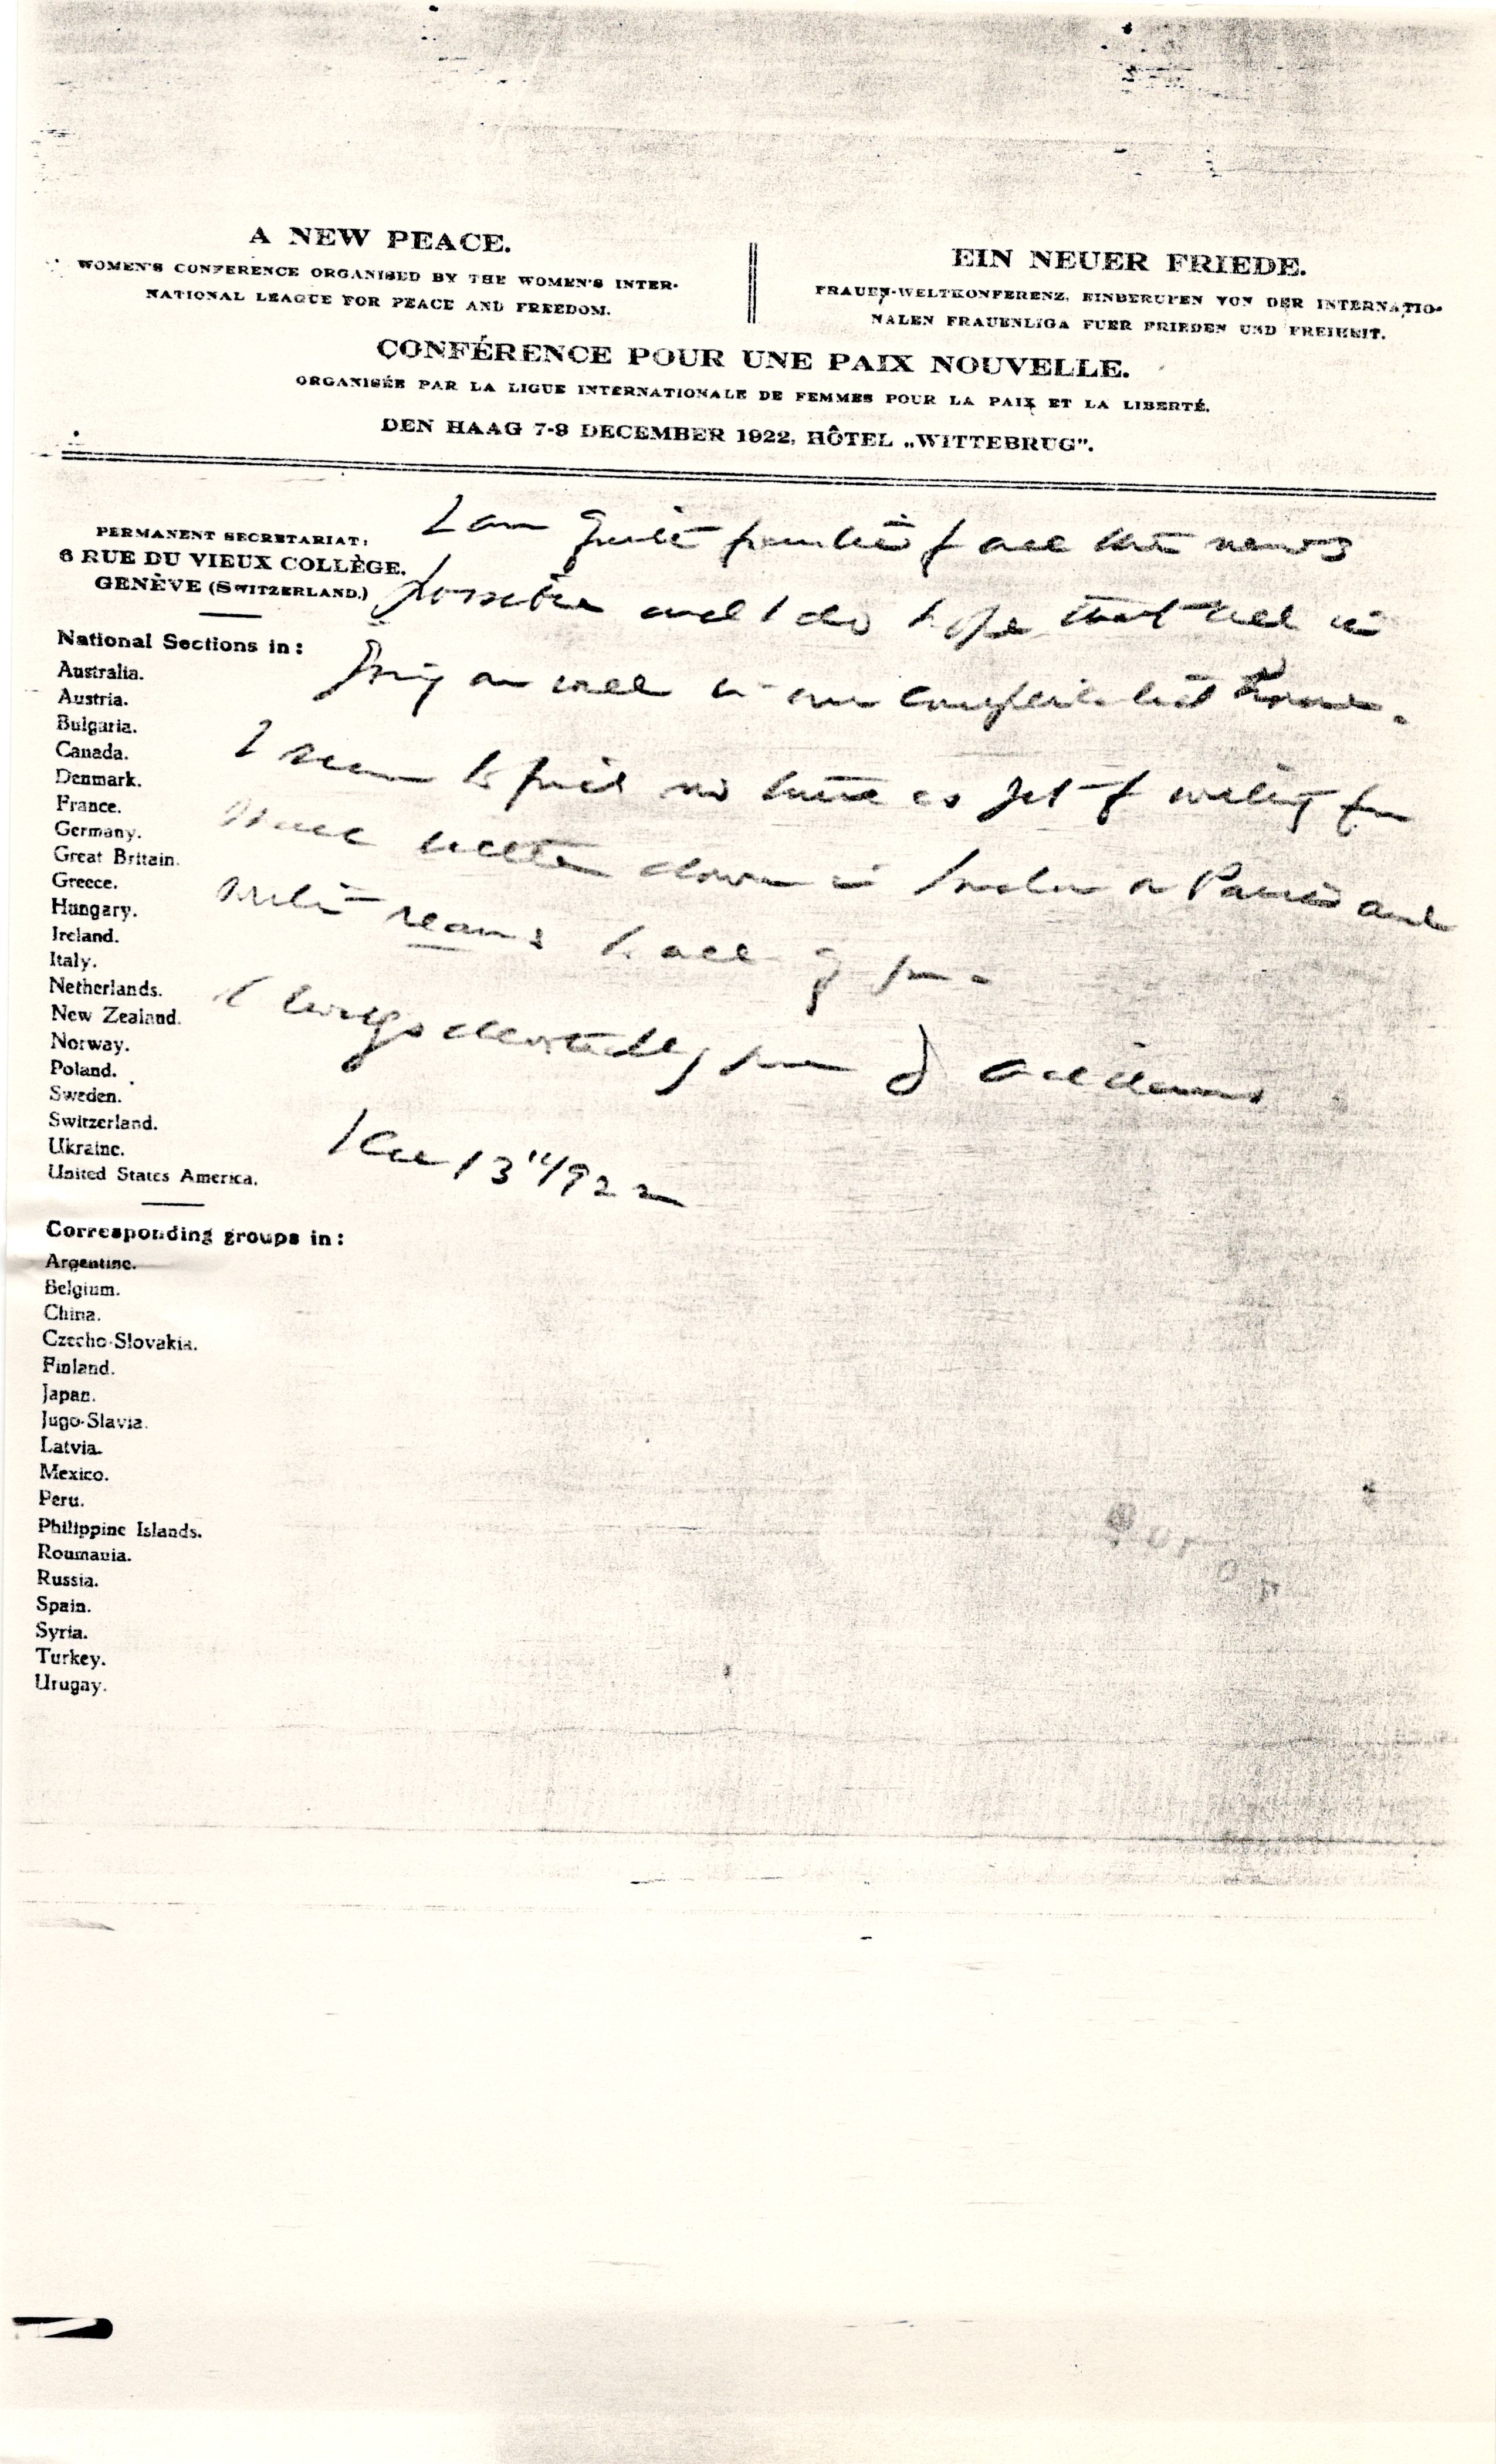 A NEW PEACE.
WOMEN'S CONFERENCE ORGANISED BY THE WOMEN'S INTER-
NATIONAL LEAGUE FOR PEACE AND FREEDOM.
EIN NEUER FRIEDE.
FRAUEN-WELTKONFERENZ, EINBERUFEN VON DER INTERNATIO-
NALEN FRAUENLIGA FUER FRIEDEN UND FREIHEIT.
CONFÉRENCE POUR UNE PAIX NOUVELLE.
ORGANISÉE PAR LA LIGUE INTERNATIONALE DE FEMMES POUR LA PAIX ET LA LIBERTÉ.
DEN HAAG 7-9 DECEMBER 1922, HÔTEL „WITTEBRUG".
PERMANENT SECRETARIAT:
6 RUE DU VIEUX COLLÈGE.
GENÈVE (SWITZERLAND.)
National Sections in:
Australia.
Austria.
Bulgaria.
Canada.
Denmark.
France.
Germany.
Great Britain.
Greece.
Hungary.
Ireland.
Italy.
Netherlands.
New Zealand.
Norway.
Poland.
Sweden.
Switzerland.
Ukraine.
United States America.
Corresponding groups in:
Argentine.
Belgium.
China.
Czecho-Slovakia.
Finland.
Japan.
Jugo-Slavia.
Latvia.
Mexico.
Peru.
Philippine Islands.
Roumania.
Russia.
Spain.
Syria.
Turkey.
Urugay.
I am quite of all the news
possible and I do hope that all is
going on well in our house.
I seem to find no time as yet of writing for
down in London or Paris and
write reams to all of you.
always devotedly yours J Addams
Dec 13" 1922